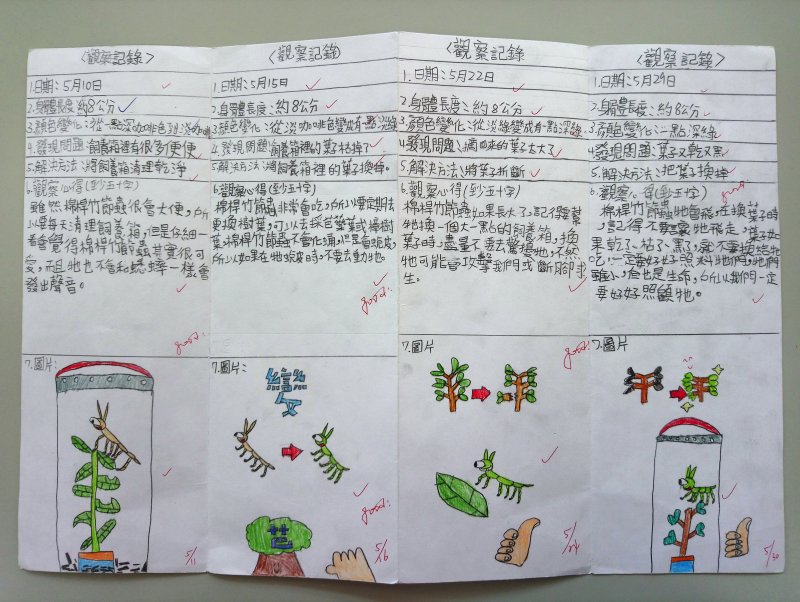 〈觀察記錄〉
1.日期：5月10日
2.身體長度：約8公分
3.顏色變化：從一點深咖啡色到淡咖啡
4.發現問題：飼養箱裡有很多便便
5.解決方法：將飼養箱清理乾淨
6.觀察心得(到五十字)
雖然棉桿竹節蟲很會大便，所
以要每天清理飼養箱，但是仔細一
看會覺得棉桿竹節蟲其實很可
愛，而且牠也不會和蟋蟀一樣會
發出聲音。
good!
7.圖片：
5/11
〈觀察記錄〉
1.日期：5月15日
2.身體長度：約8公分
3.顏色變化：從淡咖啡色變成有一點淡綠
4.發現問題：飼養箱裡的葉子枯掉了
5.解決方法：將飼養箱裡的葉子換掉。
6.觀察心得(到五十字)
棉桿竹節蟲非常會吃，所以要定期去
更換樹葉，可以去採芭樂葉或柳樹
葉，棉桿竹節蟲不會化蛹，但是會蛻皮，
所以如果在牠蛻皮時，不要去動牠。
good!
7.圖片：
變
good!
芭
5/16
〈觀察記錄
1.日期：5月22日
2.身體長度：約8公分
3.顏色變化：從淡綠變成有一點深綠
4.發現問題：摘回來的葉子太大了
5.解決方法：將葉子折斷
6.觀察心得(到五十字)
棉桿竹節蟲如果長大了，記得要幫
牠換一個大一點的飼養箱，換
葉子時，盡量不要去驚擾牠，不然
牠可能會攻擊我們或斷腳求
生。
good!
7.圖片
5/24
〈觀察記錄〉
1.日期：5月29日
2.身體長度：約8公分
3.顏色變化：一點深綠
4.發現問題：葉子又乾又黑
5.解決方法：把葉子換掉
good!
6.觀察心得(到五十字)
棉桿竹節蟲牠會飛，在換葉子時，
記得不要讓牠飛走，葉子如
果乾了、枯了、黑了，就不要換給牠
吃，一定要好好照料牠們，牠們
雖小，但也是生命，所以我們一定
要好好照顧牠。
7.圖片
5/30